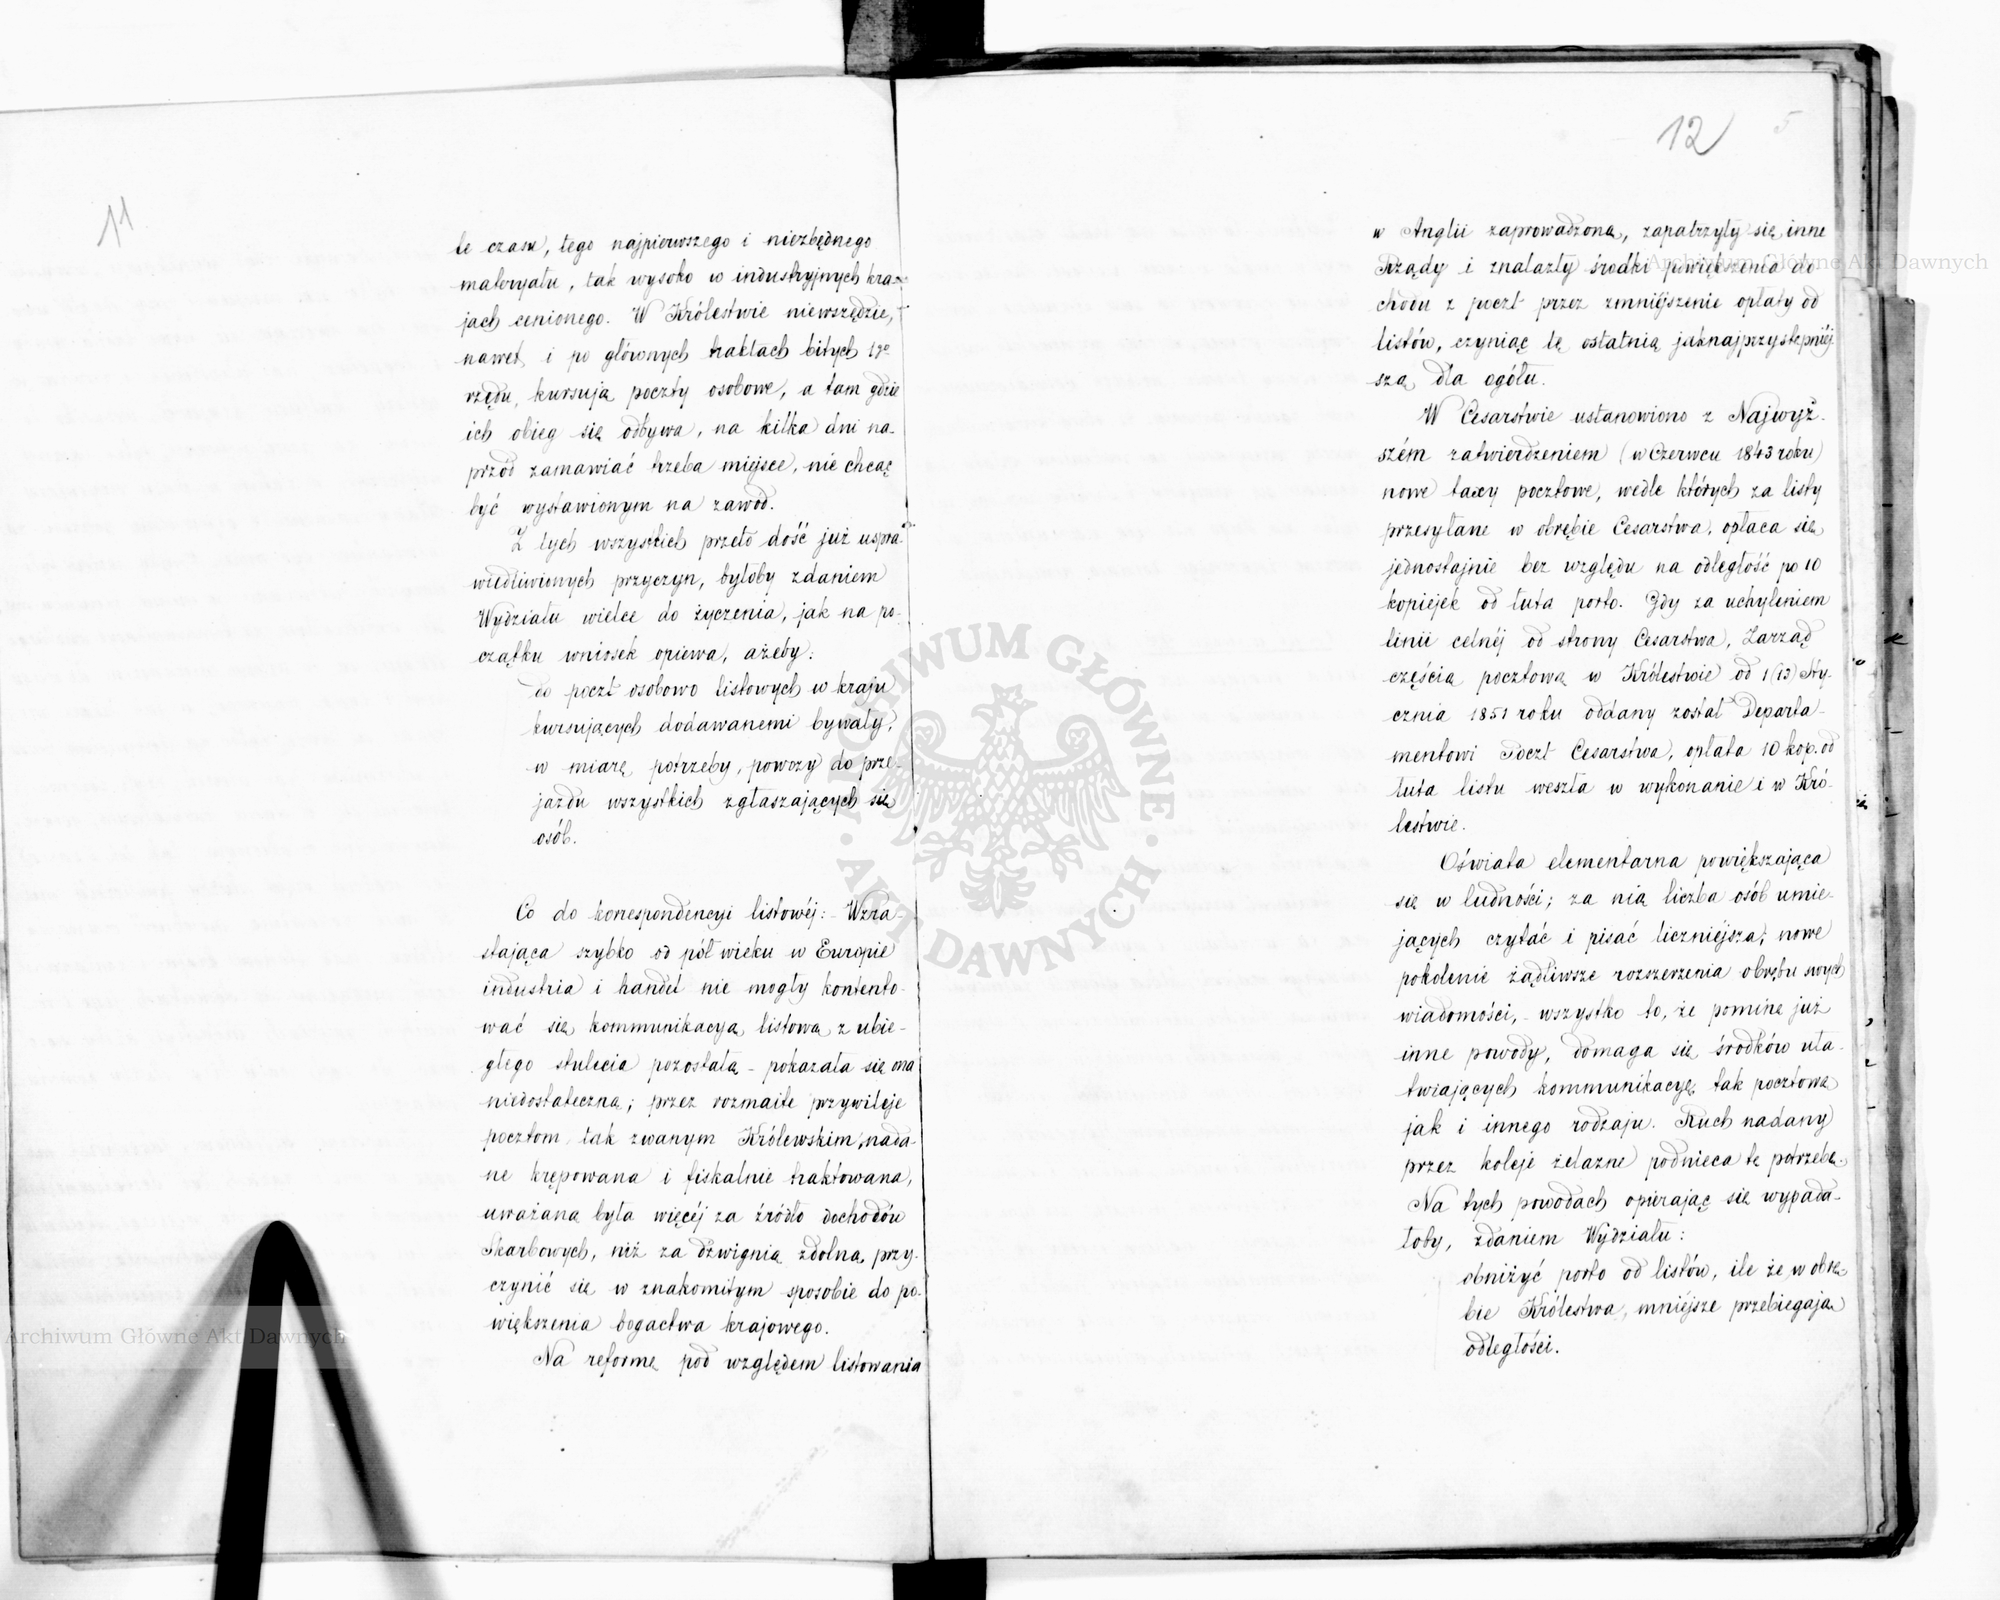 11
le czasu, tego najpierwszego i niezbędnego
materyału, tak wysoko w industryjnych kra-
jach cenionego. W Królestwie niewszędzie,
nawet, i po głównych traktach bitych 1go
rzędu, kursują poczty osobowe, a tam gdzie
ich obieg się odbywa, na kilka dni na-
przód zamawiać trzeba miejsce, nie chcąc
być wystawionym na zawod.
Z tych wszystkich przeto dość już uspra-
wiedliwionych przyczyn, byłoby zdaniem
Wydziału wielce do życzenia, jak na po-
czątku wniosek opiewa, ażeby:
do poczt osobowo listowych w kraju
kursujących dodawanemi bywały,
w miarę potrzeby, powozy do prze-
jazdu wszystkich zgłaszających się
osób.
Co do korrespondencyi listowéj: Wzra-
stająca szybko od pół wieku w Europie
industria i handel nie mogły kontento-
wać się kommunikacyą listową z ubie-
głego stulecia pozostałą - pokazała się ona
niedostateczną; przez rozmaite przywileje
pocztom tak zwanym Królewskim nada-
ne krępowana i fiskalnie traktowana,
uważaną była więcéj za źródło dochodów
Skarbowych, niż za dźwignią zdolną przy-
czynić się w znakomitym sposobie do po-
większenia bogactwa krajowego.
Na reformę pod względem listowania
12
5
w Anglii zaprowadzoną, zapatrzyły się inne
Rządy i znalazły środki powiększenia do
chodu z poczt przez zmniéjszenie opłaty od
listów, czyniąc tę ostatnią jaknajprzystępniéj
szą dla ogółu.
W Cesarstwie ustanowiono z Najwyż-
szém zatwierdzeniem (w Czerwcu 1843 roku)
nowe taxy pocztowe, wedle których za listy
przesyłane w obrębie Cesarstwa, opłaca się
jednostajnie bez względu na odległość po 10
kopiejek od łuta porto. Gdy za uchyleniem
linii celnéj od strony Cesarstwa, Zarząd
częścią pocztową w Królestwie od 1 (13) Sty-
cznia 1851 roku oddany został Departa-
mentowi Poczt Cesarstwa, opłata 10 kop. od
łuta listu weszła w wykonanie i w Kró-
lestwie.
Oświata elementarna powiększająca
się w ludności; za nią liczba osób umie-
jących czytać i pisać liczniejsza; nowe
pokolenie żądliwsze rozszerzenia obrębu swych
wiadomości, - wszystko to, że pominę już
inne powody, domaga się środków uła-
twiających kommunikacyę tak pocztową
jak i innego rodzaju. Ruch nadany
przez koleje żelazne podnieca tę potrzebę.
Na tych powodach opierając się wypada-
łoby, zdaniem Wydziału:
obniżyć porto od listów, ile że w obrę-
bie Królestwa, mniejsze przebiegają
odległości.
ARCHIWUM GŁÓWNE · AKT DAWNYCH ·
Archiwum Główne Akt Dawnych
Archiwum Główne Akt Dawnych